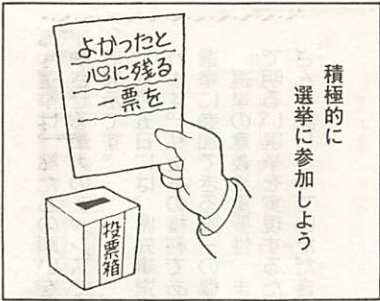 積極的に
選挙に参加しよう
よかったと
心に残る
一票を
投票箱